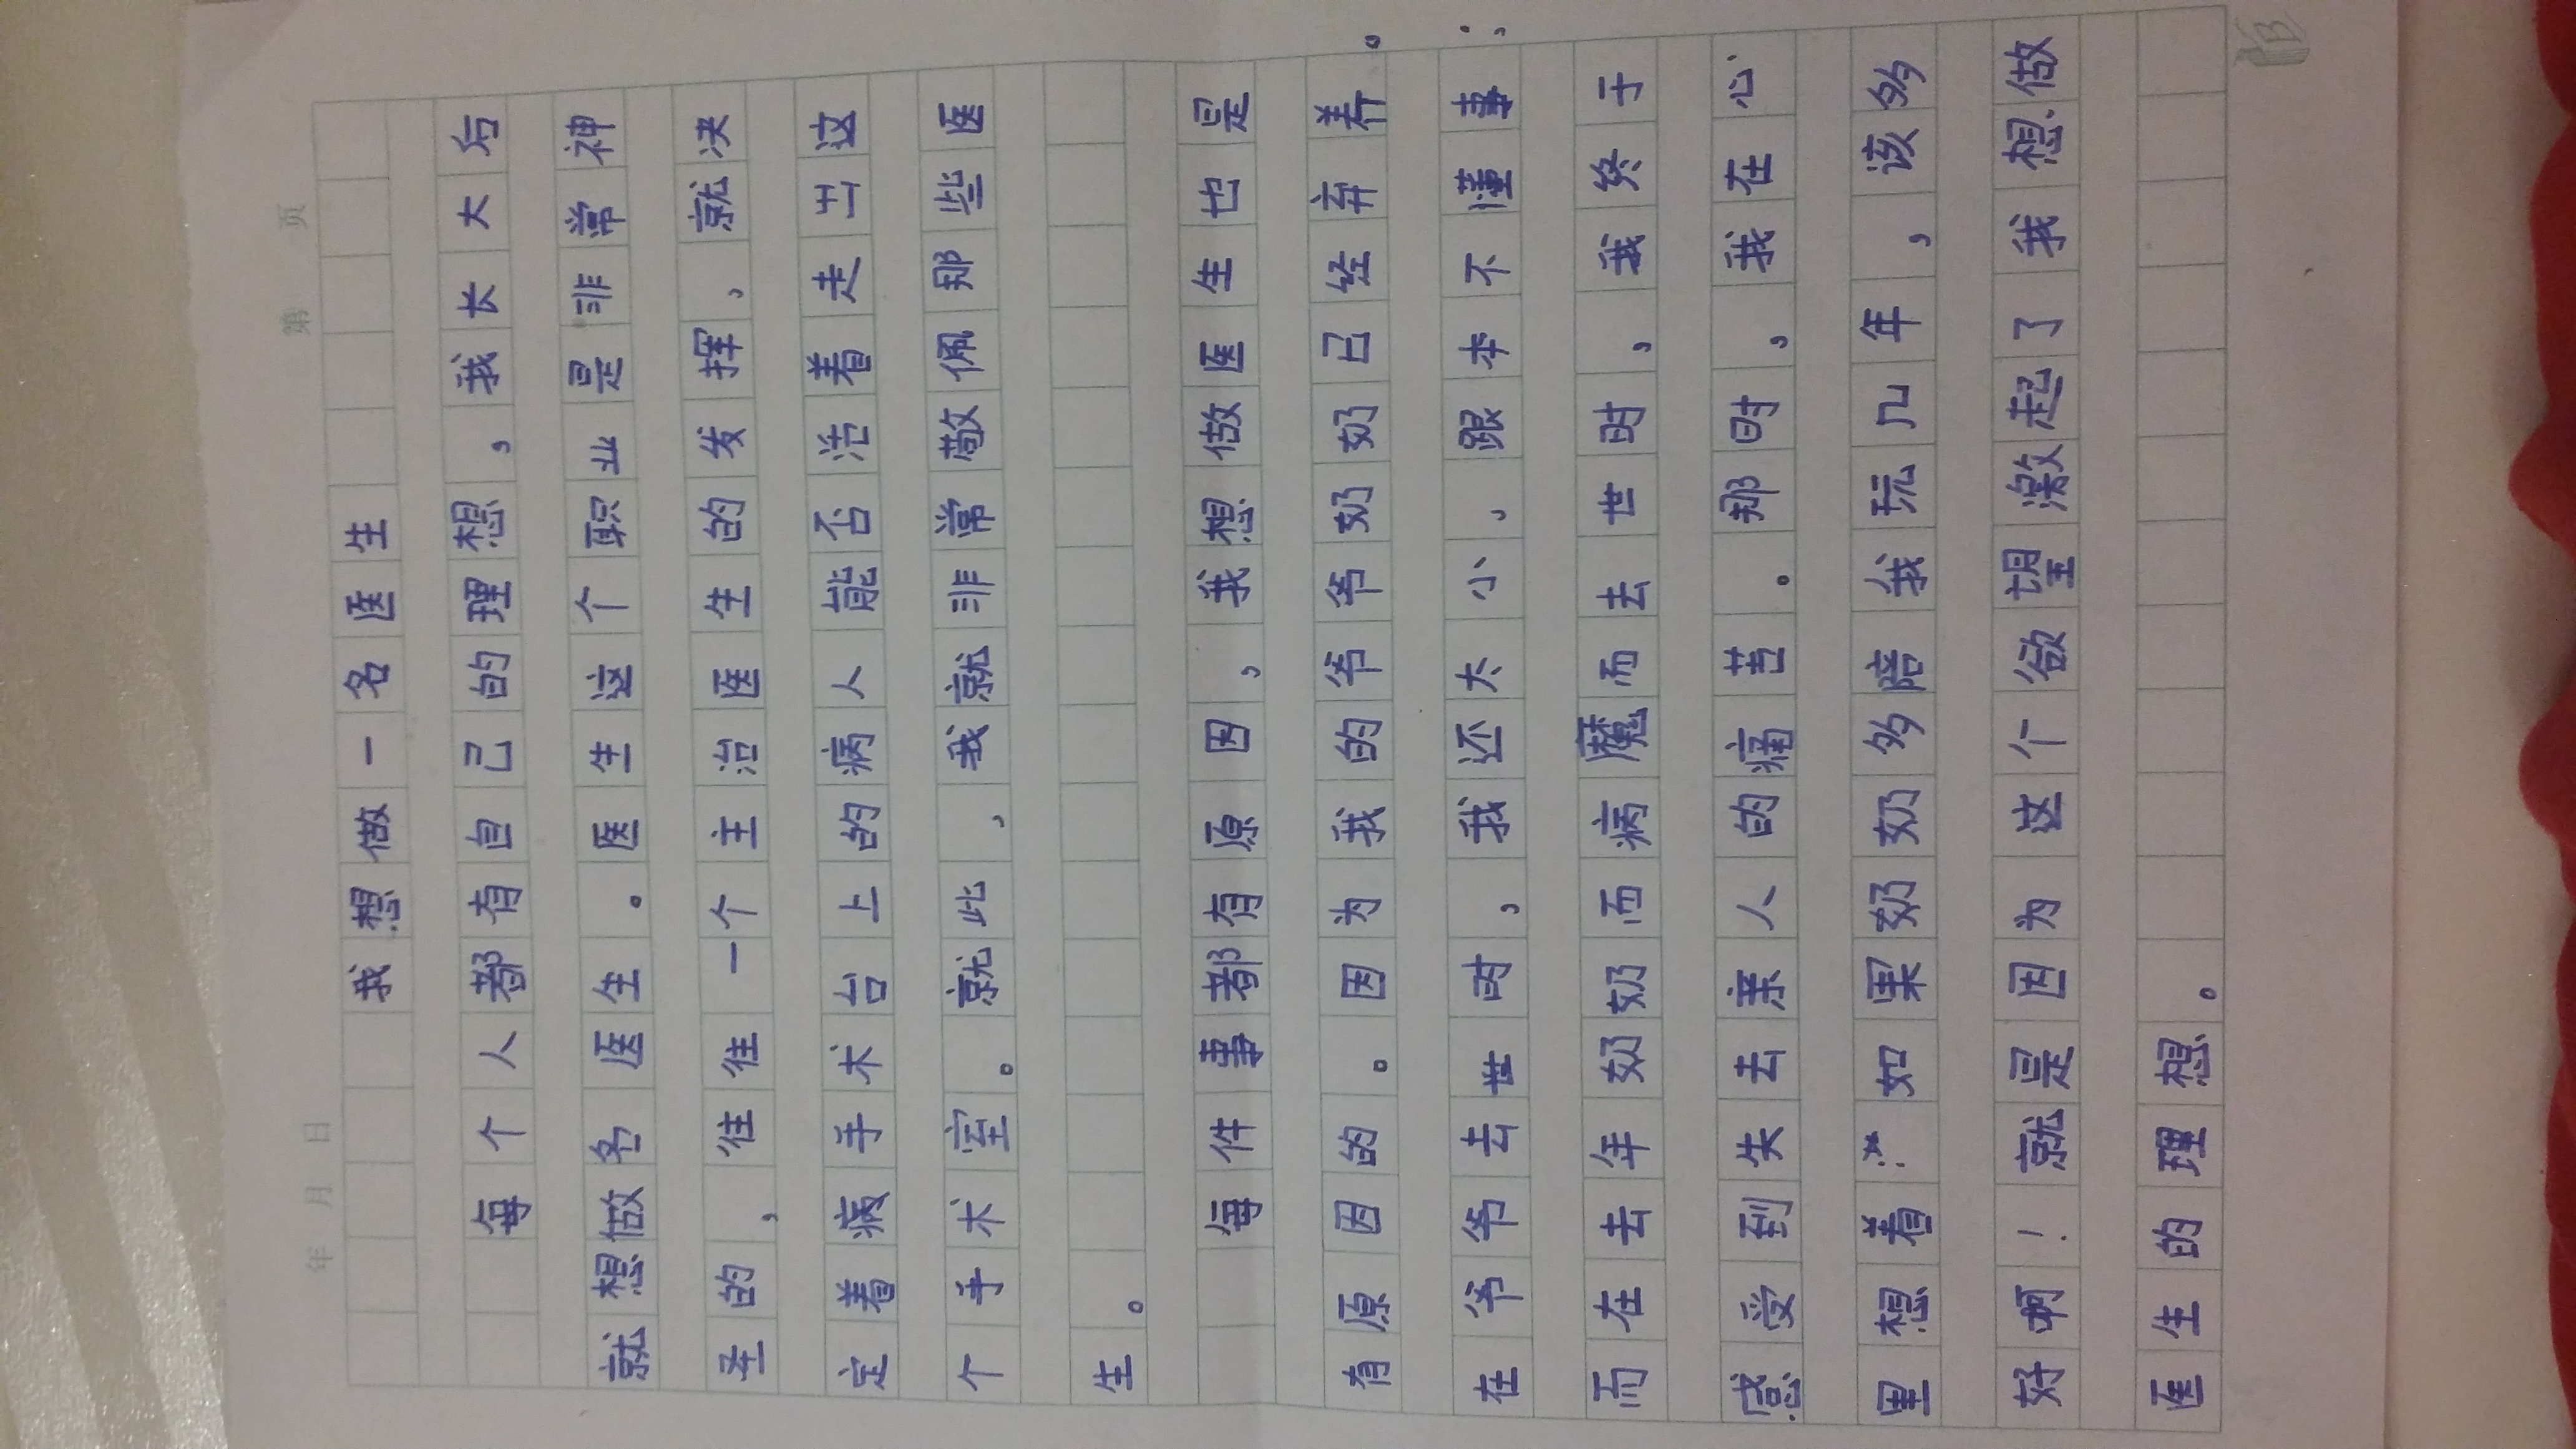 年 月 日 第 页
我想做一名医生
每个人都有自己的理想，我长大后
就想做名医生。医生这个职业是非常神
圣的，往往一个主治医生的发挥，就决
定着病手术台上的病人能否活着走出这
个手术室。就此，我就非常敬佩那些医
生。
每件事都有原因，我想做医生也是
有原因的。因为我的爷爷奶奶已经弃养。
在爷爷去世时，我还太小、跟本不懂事；
而在去年奶奶而病魔而去世时，我终于
感受到失去亲人的痛苦。那时，我在心
里想着：“如果奶奶多陪我玩几年，该多
好啊！就是因为这个欲望激起了我想做
医生的理想。